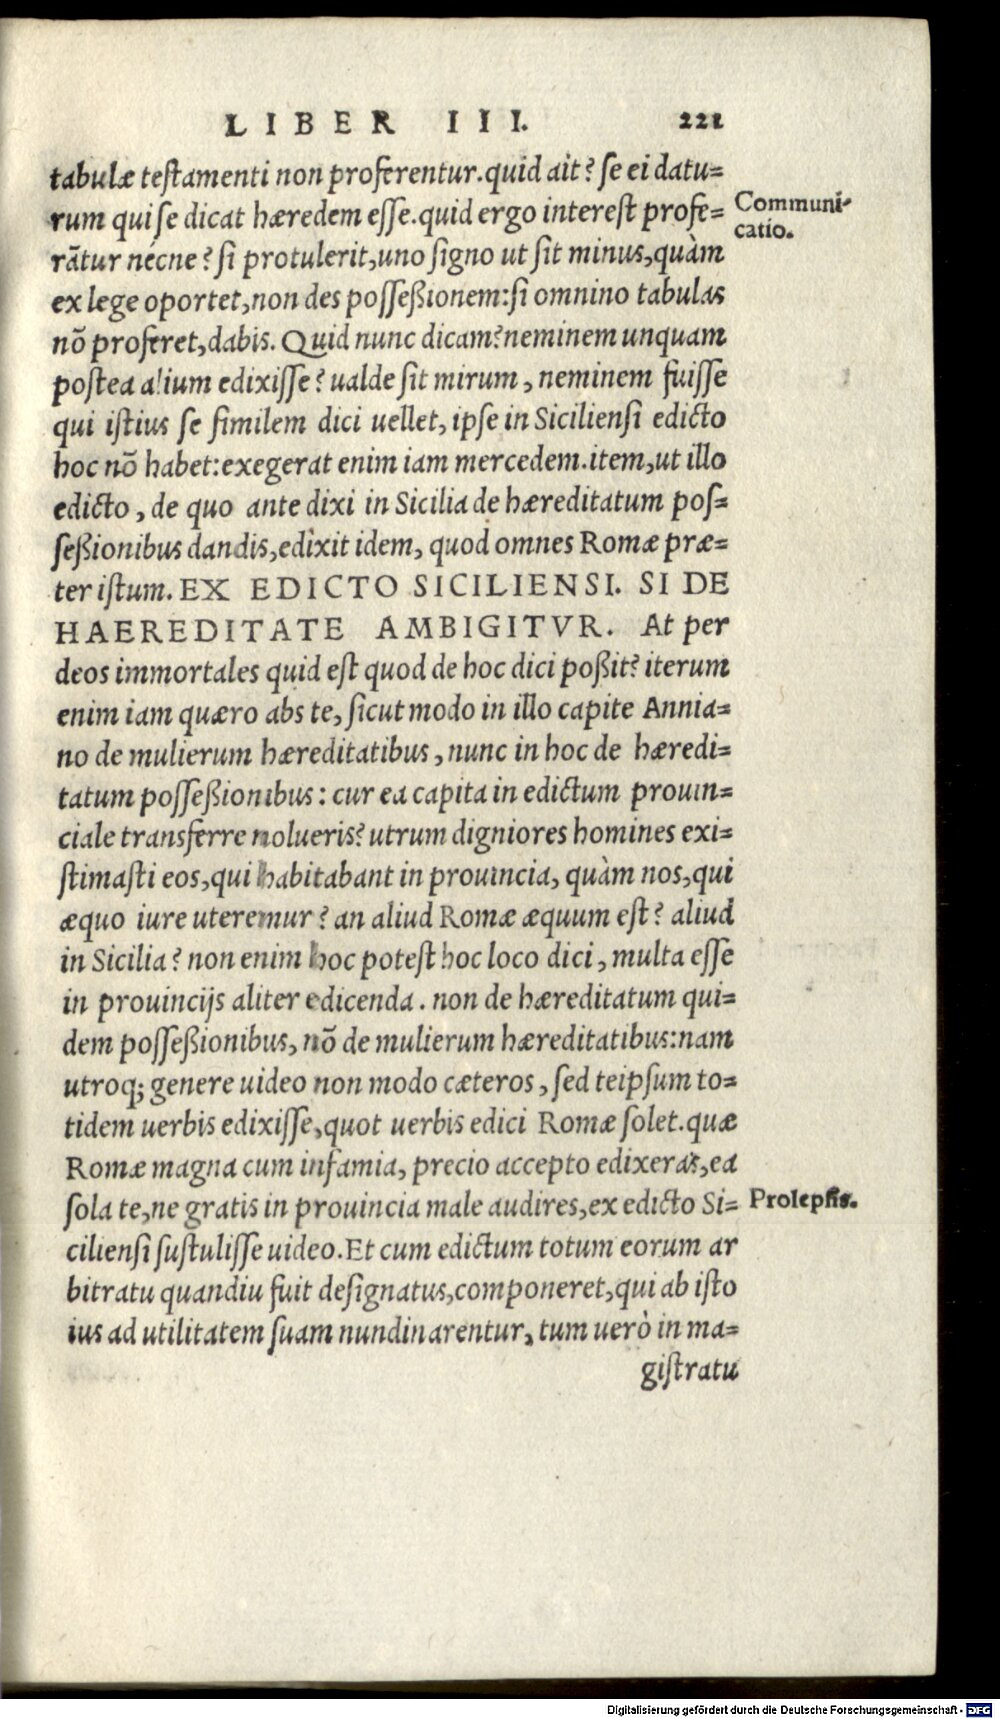 LIBER III. 221
tabulæ testamenti non proferentur. quid ait? se ei datu=
rum qui se dicat hæredem esse. quid ergo interest profe=
Communi-
catio.
rātur nécne? si protulerit, uno signo ut sit minus, quàm
ex lege oportet, non des possessionem: si omnino tabulas
nō proferet, dabis. Quid nunc dicam? neminem unquam
postea alium edixisse? ualde sit mirum, neminem fuisse
qui istius se similem dici uellet, ipse in Siciliensi edicto
hoc nō habet: exegerat enim iam mercedem. item, ut illo
edicto, de quo ante dixi in Sicilia de hæreditatum pos=
seßionibus dandis, edixit idem, quod omnes Romæ præ=
ter istum. EX EDICTO SICILIENSI. SI DE
HAEREDITATE AMBIGITVR. At per
deos immortales quid est quod de hoc dici poßit? iterum
enim iam quæro abs te, sicut modo in illo capite Annia=
no de mulierum hæreditatibus, nunc in hoc de hæredi=
tatum posseßionibus: cur ea capita in edictum prouin=
ciale transferre nolueris? utrum digniores homines exi=
stimasti eos, qui habitabant in prouincia, quàm nos, qui
æquo iure uteremur? an aliud Romæ æquum est? aliud
in Sicilia? non enim hoc potest hoc loco dici, multa esse
in prouincijs aliter edicenda. non de hæreditatum qui=
dem posseßionibus, nō de mulierum hæreditatibus: nam
utroq; genere uideo non modo cæteros, sed teipsum to=
tidem uerbis edixisse, quot uerbis edici Romæ solet. quæ
Romæ magna cum infamia, precio accepto edixeras, ea
sola te, ne gratis in prouincia male audires, ex edicto Si=
Prolepsis.
ciliensi sustulisse uideo. Et cum edictum totum eorum ar
bitratu quandiu fuit designatus, componeret, qui ab isto
ius ad utilitatem suam nundinarentur, tum uerò in ma=
gistratu
Digitalisierung gefördert durch die Deutsche Forschungsgemeinschaft - DFG